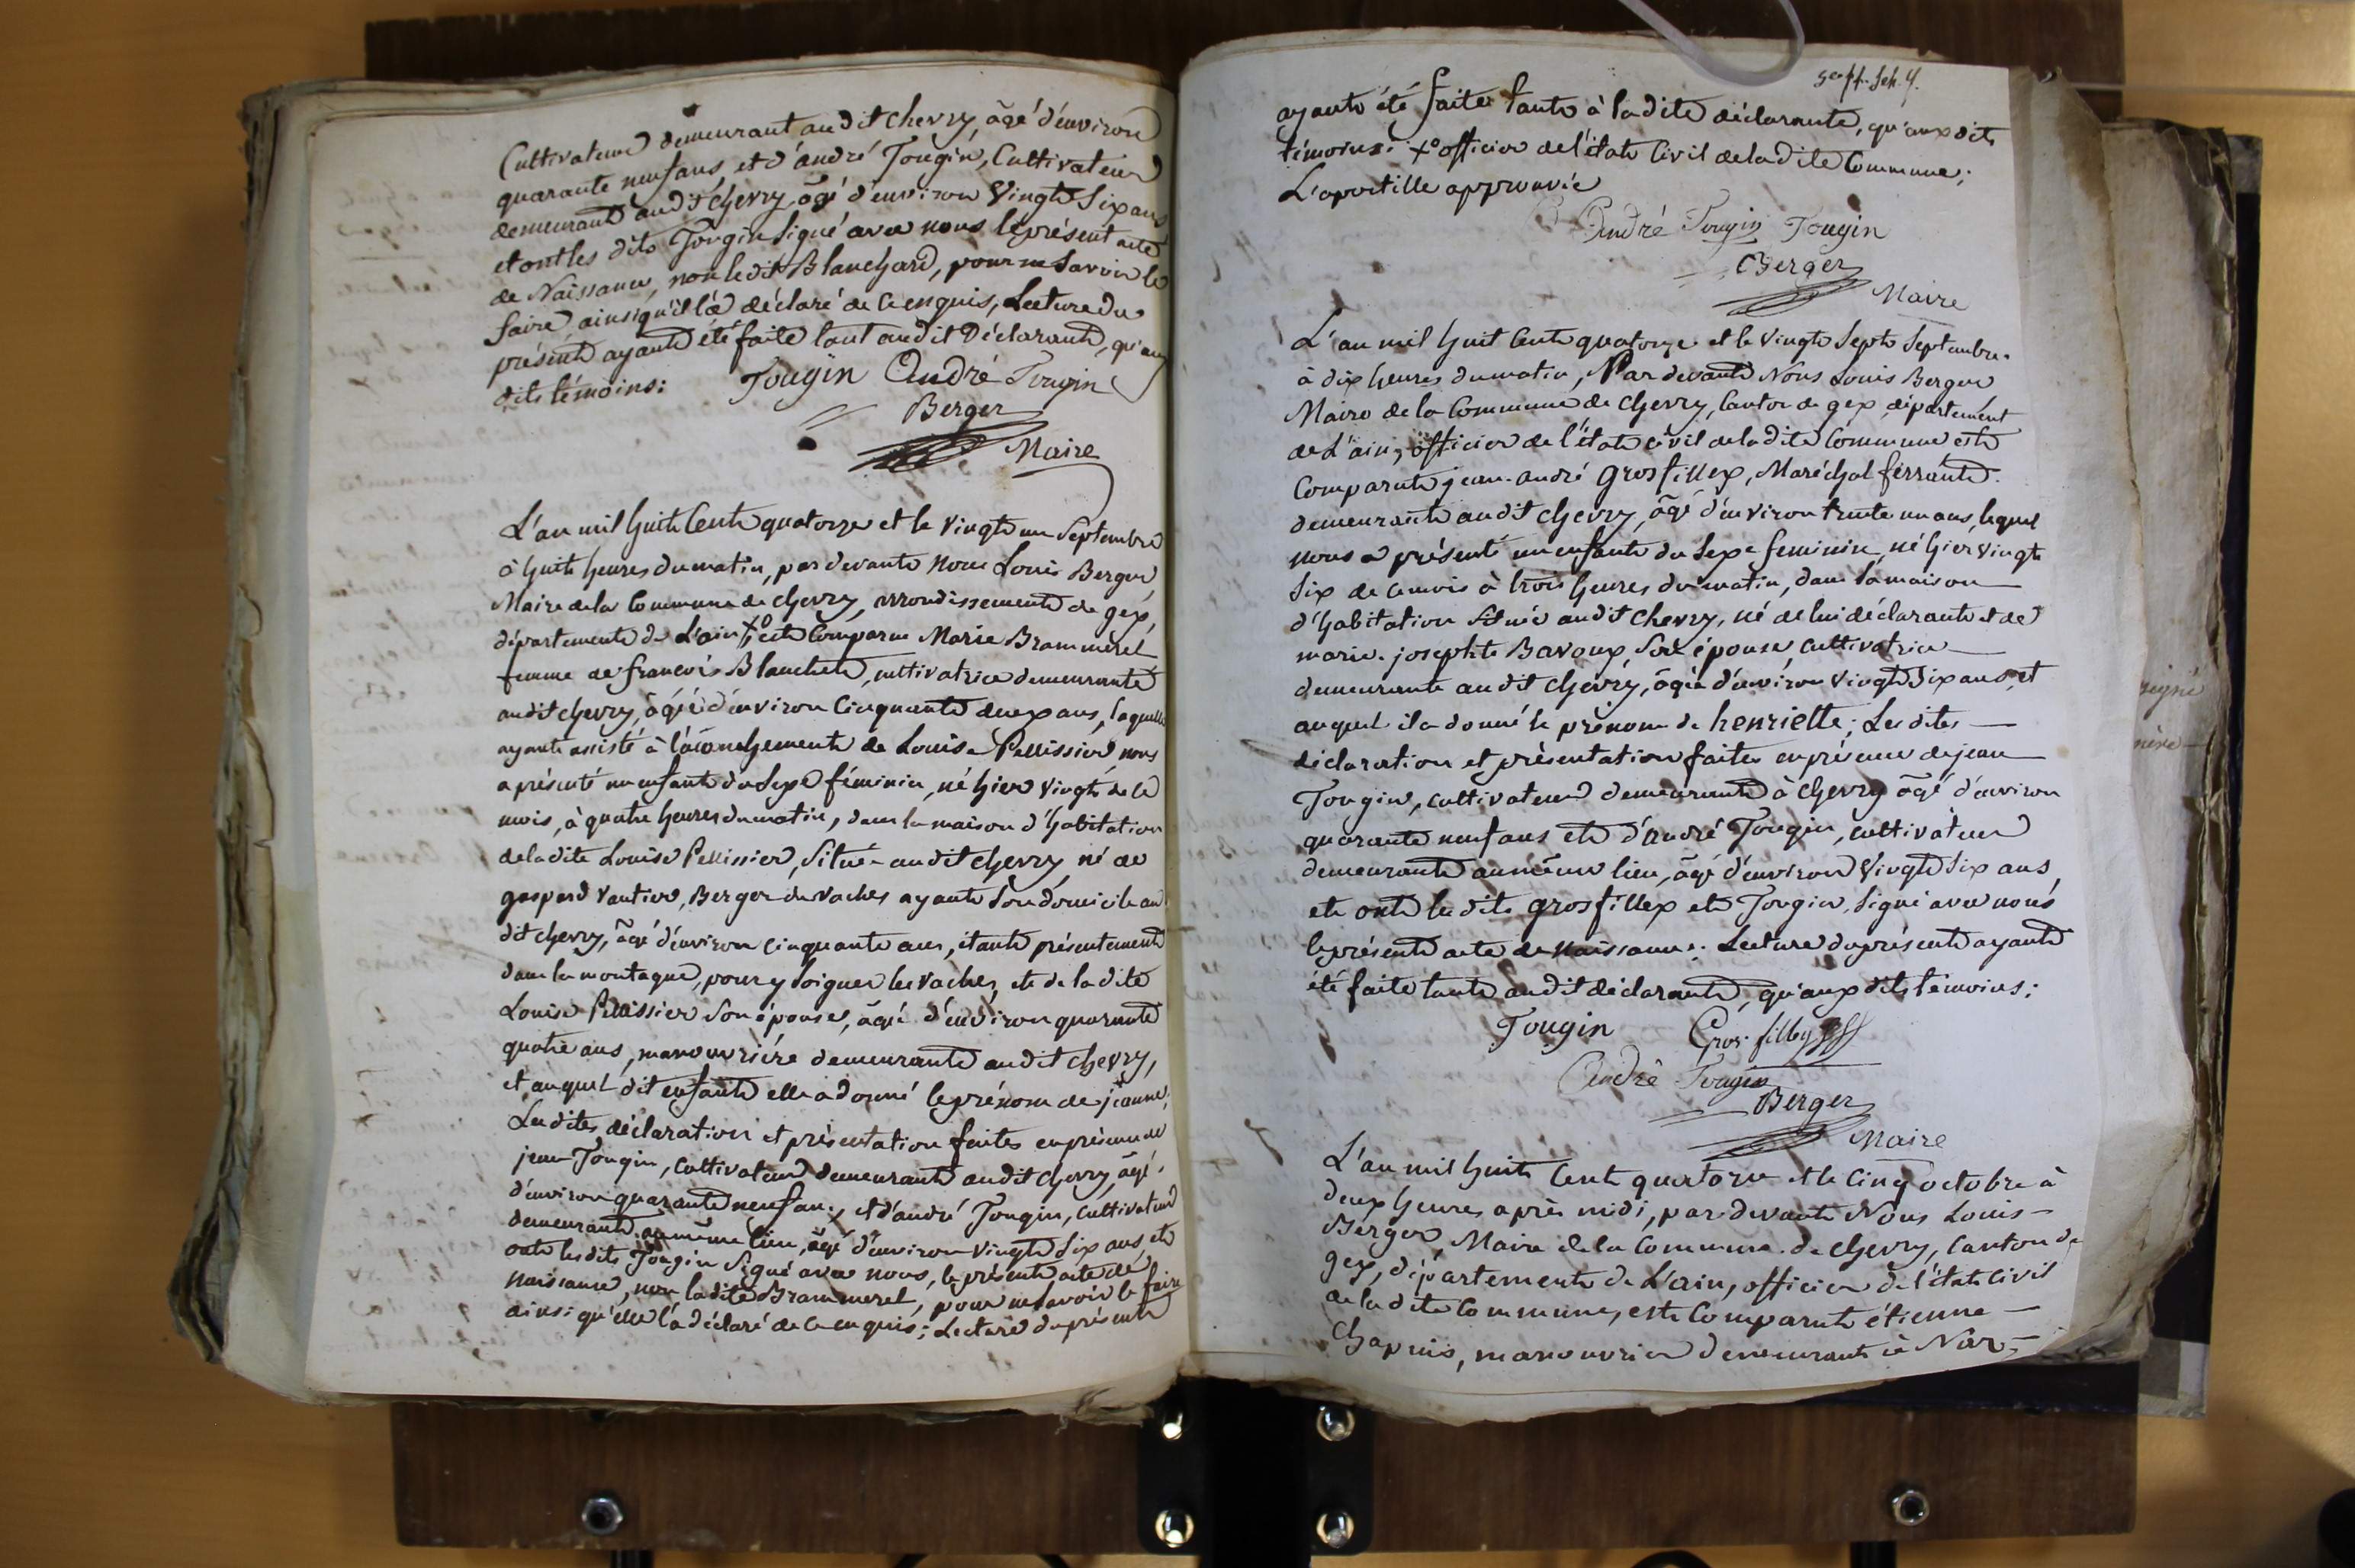 Cultivateur demeurant audit Chevry, âgé d'environ
quarante neuf ans, et d'andré Tougin, Cultivateur
demeurant audit Chevry, âgé d'environ Vingt Six ans
et ont les dits Tougin Signé avec nous le présent acte
de Naissance, non ledit Blanchard, pour ne Savoir le
faire, ainsi qu'il l'a déclaré de ce enquis, Lecture du
présent ayant été faite tant audit Déclarant, qu'aux
dits témoins:
Tougin André Tougin
Berger
Maire
L'an mil huit Cent quatorze et le vingt un Septembre
à huit heures du matin, par devant Nous Louis Berger,
Maire de la Commune de Chevry, arrondissement de gex,
département de L'ain, +° est Comparue Marie Brammerel
femme de françois Blanchet, cultivatrice demeurante
audit Chevry, âgée d'environ Cinquante deux ans, laquelle
ayant assisté à l'acouchement de Louise Pellissier nous
a présenté un enfant du Sexe féminin, né hier vingt de ce
mois, à quatre heures du matin, dans la maison d'habitation
de la dite Louise Pellissier, Située audit Chevry, né de
gaspard Vautier, Berger de vaches ayant Son domicile au
dit Chevry, âgé d'environ cinquante ans, étant présentement
dans la montagne, pour y Soigner les Vaches, et de la dite
Louise Pellissier Son épouse, âgée d'environ quarante
quatre ans, manouvrière demeurante audit Chevry,
et auquel dit enfant elle a donné le prénom de jeanne;
Les dites déclaration et présentation faites en présence de
jean Tougin, Cultivateur demeurant audit Chevry, âgé
d'environ quarante neuf ans, et d'andré Tougin, Cultivateur
demeurant au même lieu, âgé d'environ Vingt Six ans, et
ont les dits Tougin Signé avec nous, le présent acte de
naissance, non la dite Brammerel, pour ne savoir le faire
ainsi qu'elle l'a déclaré de ce enquis; Lecture du présent
ayant été faite tant à la dite déclarante, qu'aux dits
témoins: +° officier de l'état Civil de la dite Commune;
L'apostille approuvée
André Tougin Tougin
Berger
Maire
L'an mil huit Cent quatorze et le Vingt Sept Septembre
à dix heures du matin, Par devant Nous Louis Berger
Maire de la Commune de Chevry, Canton de gex, département
de L'ain, officier de l'état civil de la dite Commune est
Comparut jean-andré grosfillex, Maréchal ferrant.
demeurant audit Chevry, âgé d'environ trente un ans, lequel
nous a présenté un enfant du Sexe feminin, né hier vingt
Six de ce mois à trois heures du matin, dans Sa maison
d'habitation Située audit Chevry, né de lui déclarant et de
marie-josephte Bavoux, Son épouse, Cultivatrice
demeurante audit Chevry, âgée d'environ Vingt Six ans, et
auquel il a donné le prénom de henriette; Les dites
déclaration et présentation faites en présence de jean
Tougin, cultivateur demeurant à Chevry âgé d'environ
quarante neuf ans et d'andré Tougin, cultivateur
demeurant au même lieu, âgé d'environ Vingt Six ans,
et ont les dits grosfillex et Tougin, Signé avec nous
le présent acte de Naissance: Lecture du présent ayant
été faite tant audit déclarant, qu'aux dits témoins:
Tougin Gros filley
André Tougin
Berger
Maire
L'an mil huit Cent quatorze et le Cinq octobre à
deux heures après midi, par devant Nous Louis
Berger, Maire de la Commune de Chevry, Canton de
gex, département de L'ain, officier de l'état Civil
de la dite Commune, est Comparut étienne
Chapuis, manouvrier demeurant à Nar-